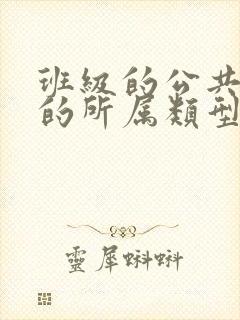 班級的公共
的所属類型
靈犀蝌蚪